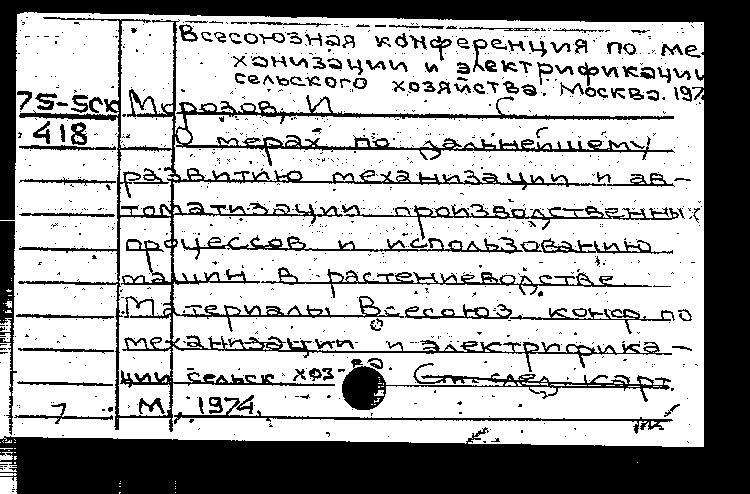 Всесоюзная конференция по ме-
ханизации и электрификации
сельского хозяйства. Москва. 197
75-5ск Морозов, И С
418 О мерах по дальнейшему
развитию механизации и ав-
томатизации производственных
процессов и использованию
машин в растениеводстве
Материалы Всесоюз. конф. по
механизации и электрифика-
ции сельск. хоз-ва. См. след. карт.
7 М., 1974.